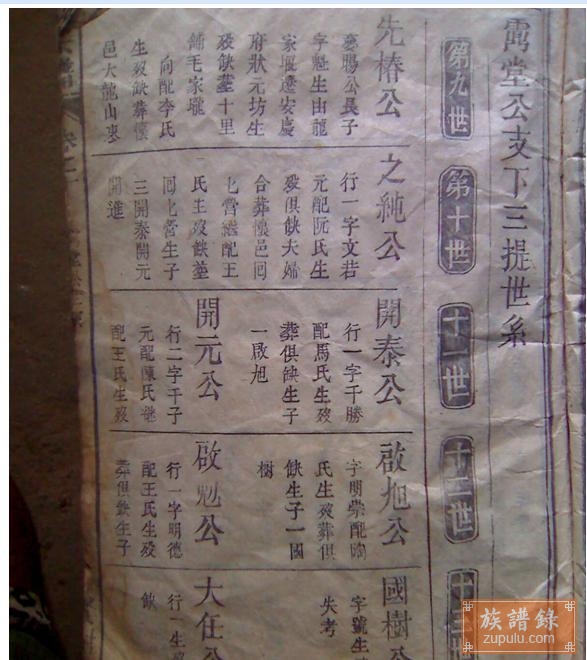 寓堂公支下三提世系
第九世
第十世
十一世
十二世
十三世
先椿公
公長子
字魁生由龍
家堰遷安慶
府狀元坊生
殁缺塟十里
鋪毛家壠
向配李氏
生殁缺葬懷
邑大龍山裏
之純公
行一字文若
元配阮氏生
殁俱缺夫婦
合葬懷邑回
七宮繼配王
氏生殁缺塟
回七宮生子
三開泰開元
開進
開泰公
行一字千勝
配馬氏生殁
葬俱缺生子
一啟旭
開元公
行二字千子
元配陳氏繼
配王氏生殁
啟旭公
字明崇配陶
氏生殁葬俱
缺生子一國
樹
啟勉公
行一字明德
配王氏生殁
葬俱缺生子
國樹公
字號生
失考
大任公
行一生
缺
族譜錄
zupulu.com